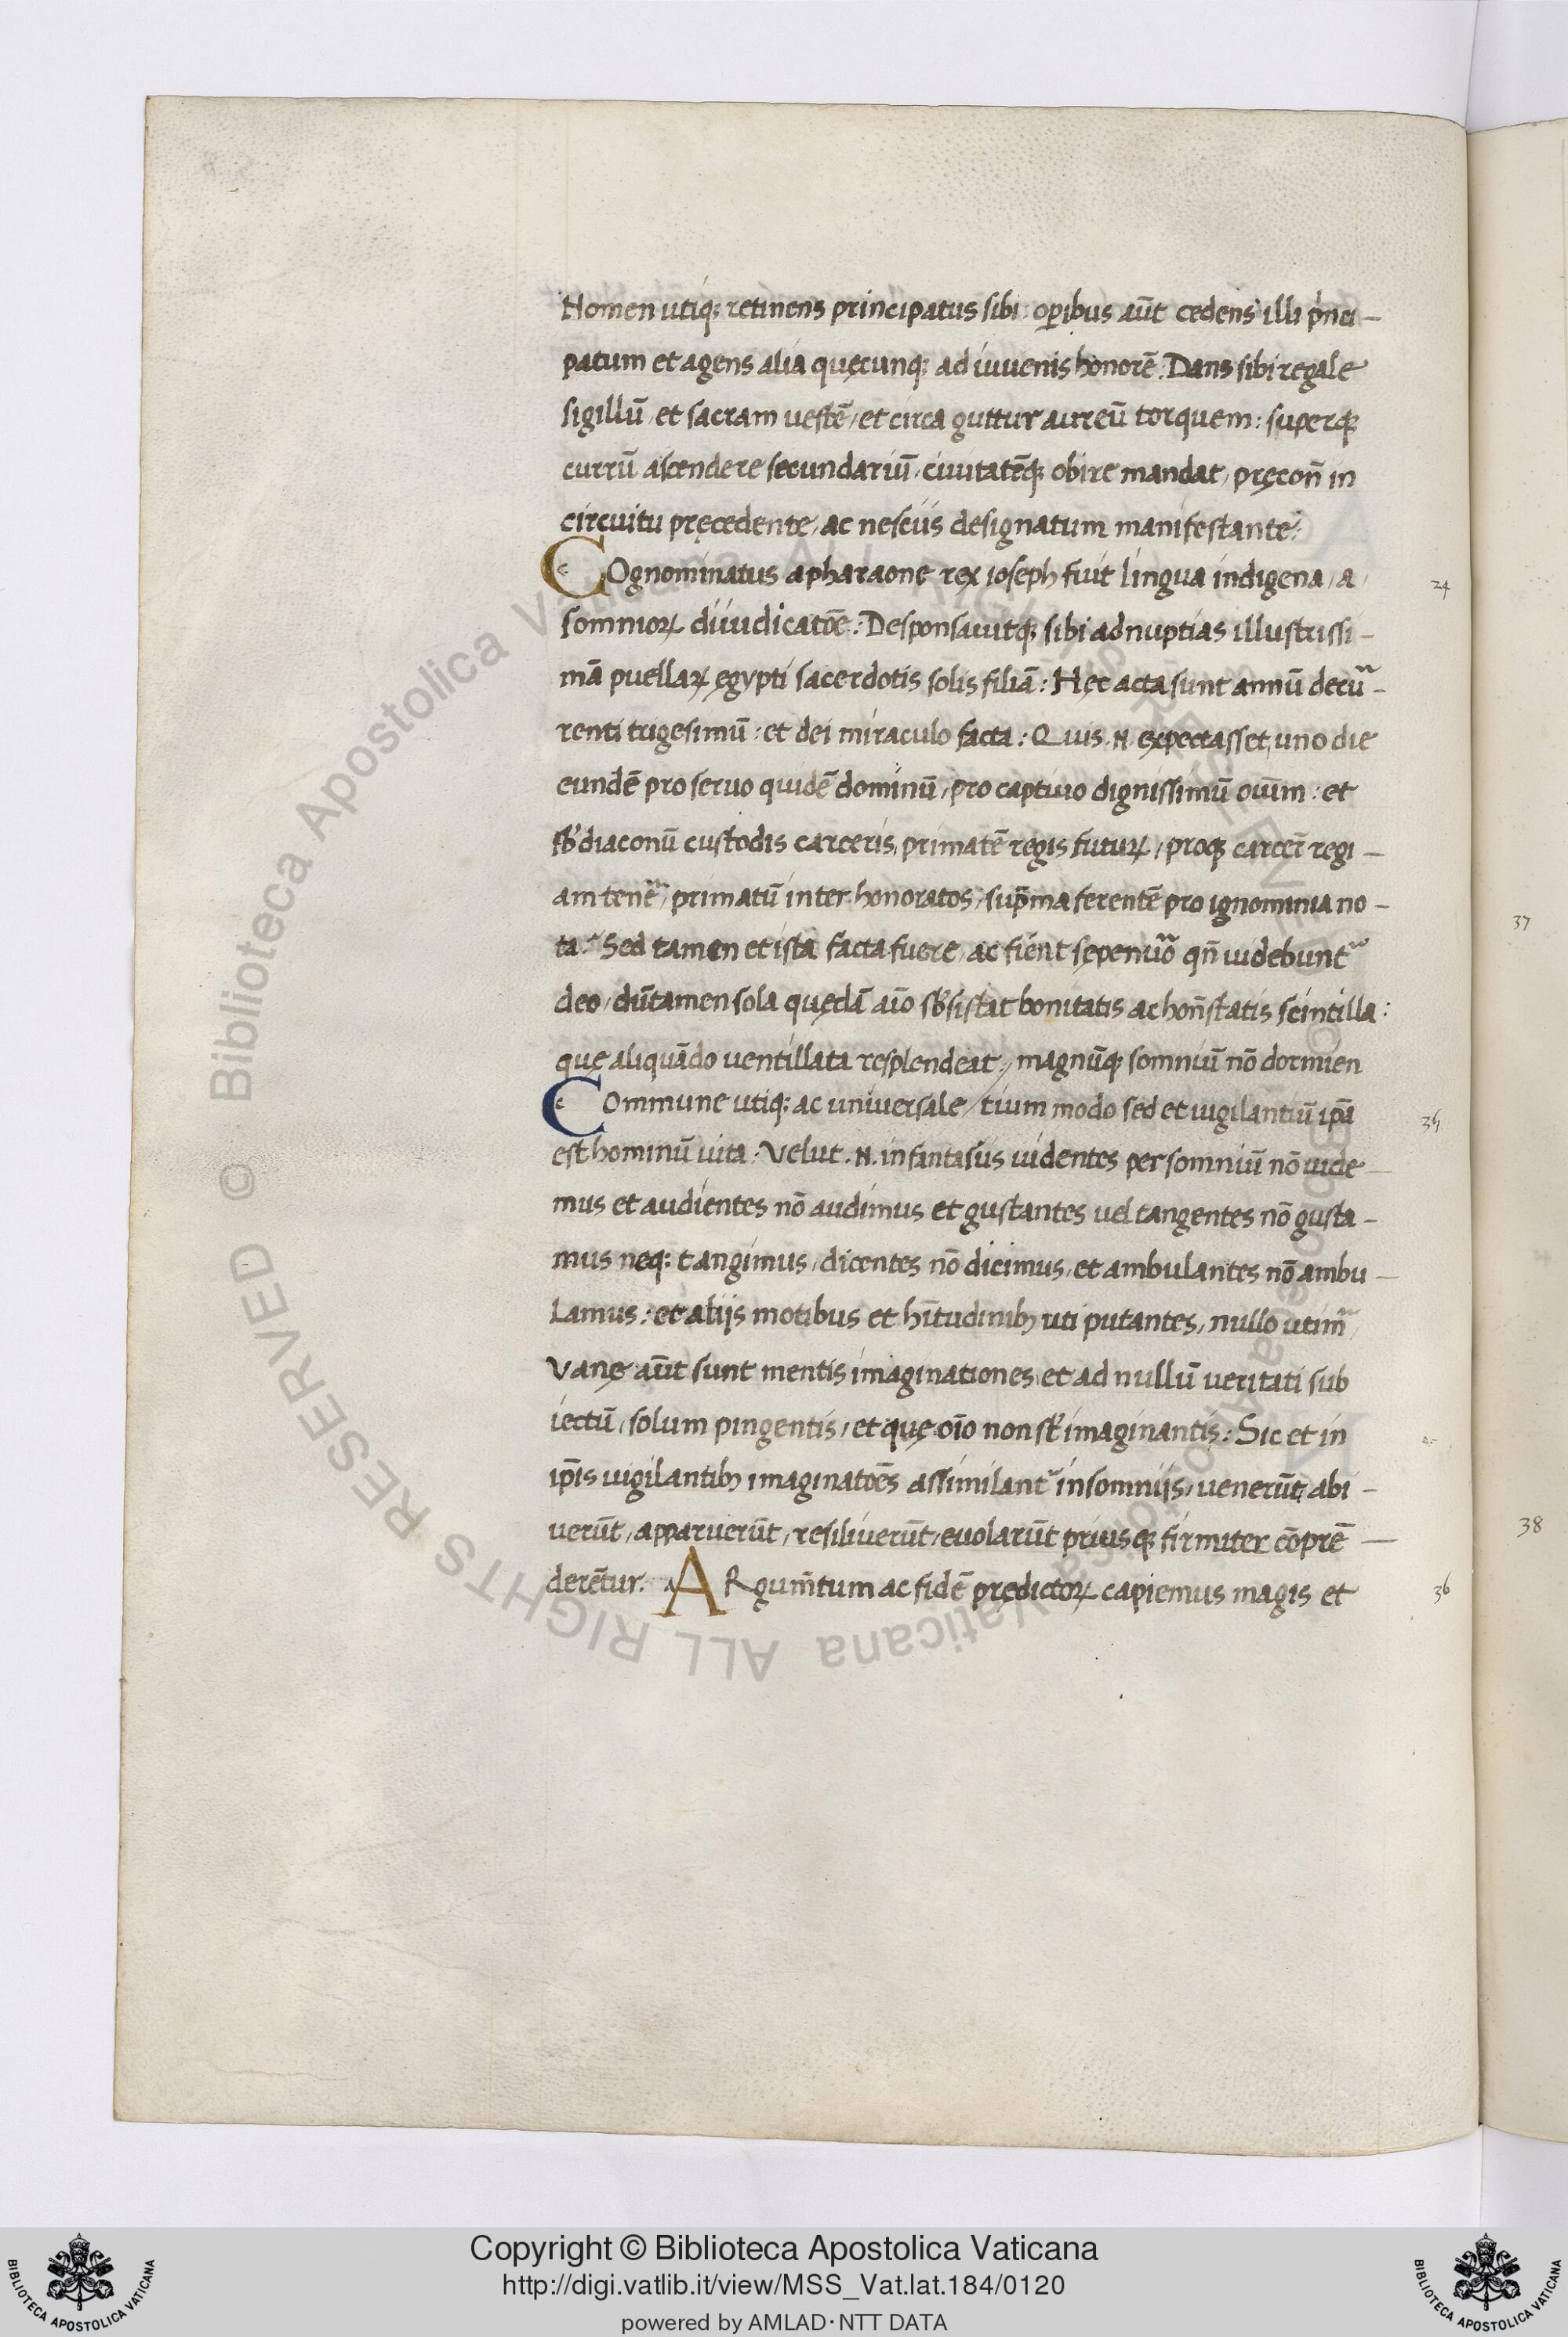 Nomen utiq; retinens principatus sibi: oꝑibus aūt cedens illi p̍nci-
patum et agens alia quęcunq; ad iuuenis honorē: Dans sibi regale
sigillū, et sacram uestē, et circa guttur aureū torquem: superq;
currū ascendere secundariū, ciuitatēq; obire mandat, pręcoñ in
circuitu pręcedente, ac nesciis designatum manifestante:
COgnominatus a pharaone rex ioseph fuit lingua indigena, a
24
somnioꝝ diiudicatōe: Desponsauitq; sibi ad nuptias illustrissi-
mā puellaꝝ ęgypti sacerdotis solis filiā: Hęc acta sunt annū decur̄-
renti trigesimū: et dei miraculo facta: Quis .N. expectasset, uno die
eundē pro seruo quidē dominū, pro captiuo dignissimū ouīm: et
sb̄diaconū custodis carceris, primatē regis futuꝝ, proq; carcer̄ regi-
am tener̄, primatū inter honoratos, sup̄ma ferentē pro ignominia no-
ta: Sed tamen et ista facta fuere, ac fient sępenūo qñ uidebunt᷑
deo, dūtamen sola quędā aīo sb̄sistat bonitatis ac hoñstatis scintilla:
quę aliquādo uentillata resplendeat, magnūq; somniū nō dormien
Commune utiq; ac uniuersale / tium modo sed et uigilantiū ip̄a
35
est hominū uita: Velut .N. in fantasiis uidentes per somniū nō uide-
mus et audientes nō audimus et gustantes uel tangentes nō gusta-
mus neq; tangimus, dicentes nō dicimus, et ambulantes nō ambu-
lamus: et alijs motibus et hītudinibꝫ uti putantes, nullo utim᷑
Vanę aūt sunt mentis imaginationes et ad nullū ueritati sub
iectū, solum pingentis, et quę oīo non st̄ imaginantis: Sic et in
ip̄is uigilantibꝫ imaginatōes assimilant᷑ insomnijs, uenerūt, abi-
uerūt, apparuerūt, resiliuerūt, euolarūt prius q̄ firmiter cōprē-
derētur. ARgum̄tum ac fidē prędictoꝝ capiemus magis et
36
37
38
© Biblioteca Apostolica Vaticana ALL RIGHTS RESERVED
Copyright © Biblioteca Apostolica Vaticana
http://digi.vatlib.it/view/MSS_Vat.lat.184/0120
powered by AMLAD·NTT DATA
BIBLIOTECA APOSTOLICA VATICANA
BIBLIOTECA APOSTOLICA VATICANA